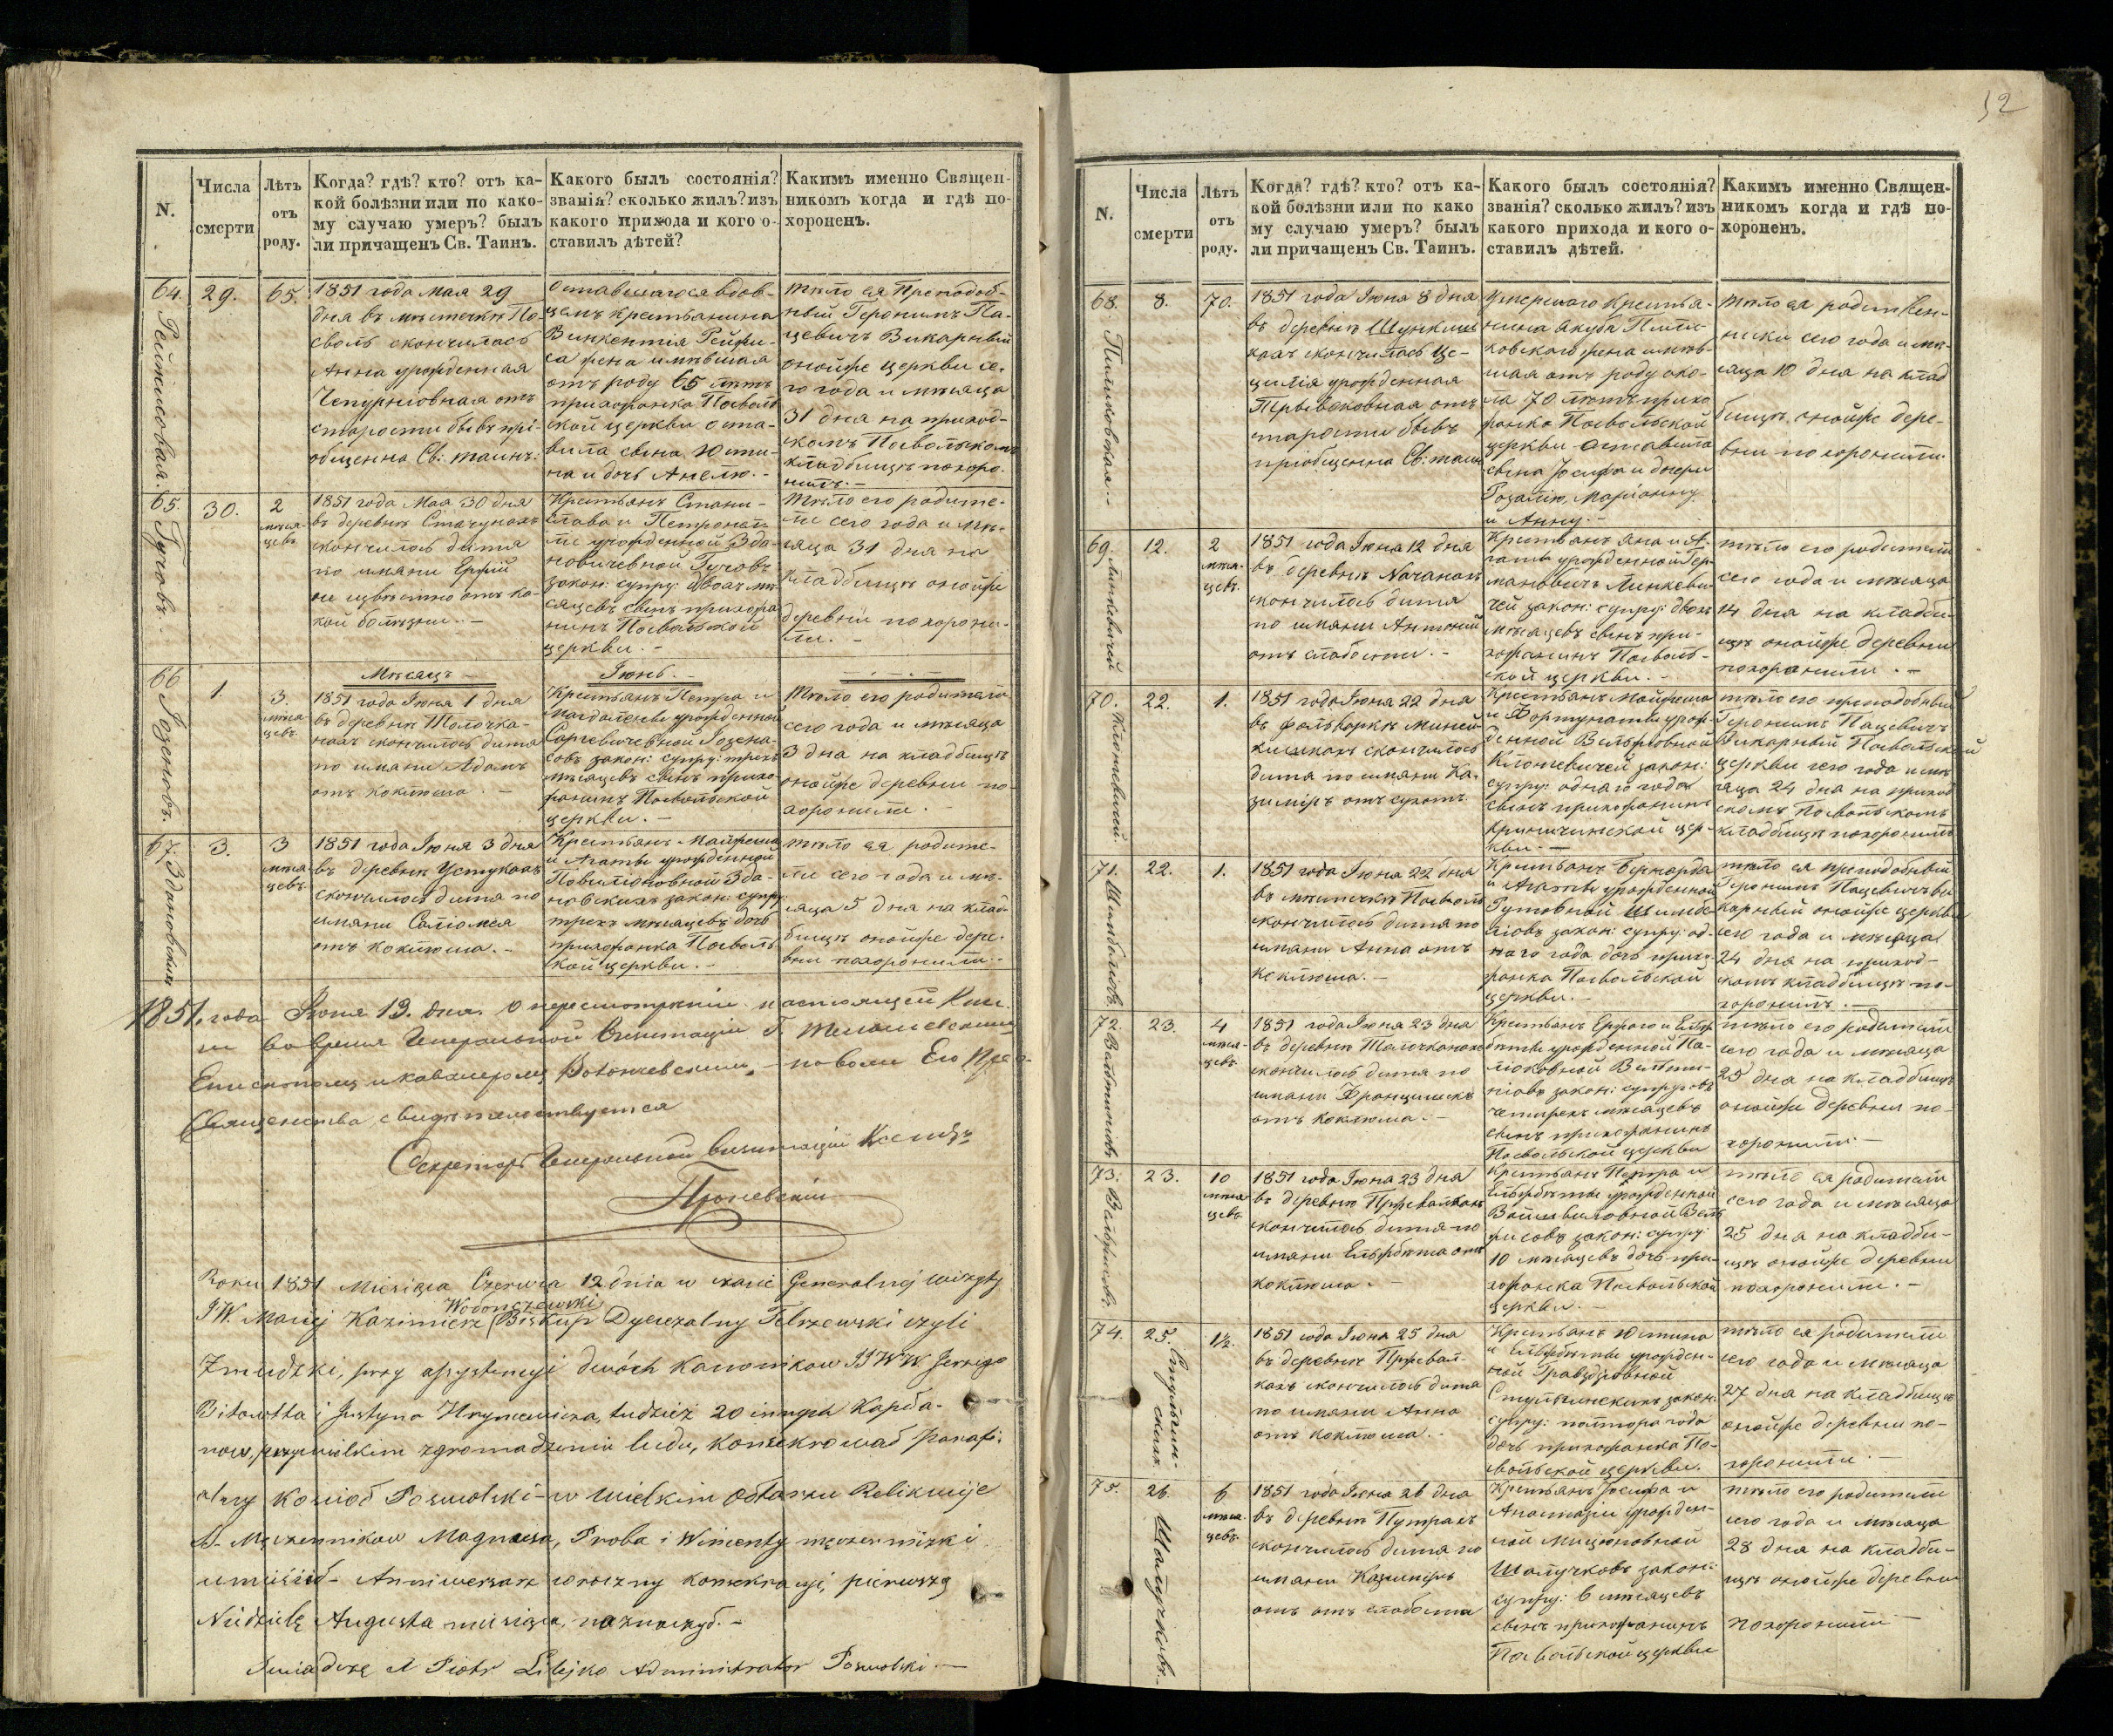 N.
Числа
смерти
Лѣтъ
отъ
роду.
Когда? гдѣ? кто? отъ ка-
кой болѣзни или по како-
му случаю умеръ? былъ
ли причащенъ Св. Таинъ.
Какого былъ состоянія?
званія? сколько жилъ? изъ
какого прихода и кого о-
ставилъ дѣтей?
Какимъ именно Священ-
никомъ когда и гдѣ по-
хороненъ.
64.
29.
65.
1851 года Мая 29
дня въ мѣстечкѣ По-
сволѣ скончилась
Анна урожденная
отъ
старости бывъ прі-
общенна Св: таинъ:
Оставшагося вдов-
цемъ крестьянина
Винкентія
жена имѣвшая
отъ роду 65 лѣтъ
прихожанка Посволь-
ской церкви оста-
вила сына Юсти-
на и дочь Анелю. -
Тѣло ея Преподоб-
ный Геронимъ Па-
цевичъ Викарный
онойже церкви се-
го года и мѣсяца
31 дня на приход-
скомъ Посвольскомъ
кладбищѣ похоро-
нилъ. -
65.
30.
2
мѣся-
цевъ
1851 года Мая 30 дня
въ деревнѣ
скончилось дитя
по имяни Ержій
не извѣстно отъ ка-
кой болѣзни. -
Крестьянъ Стани-
слава и Петронел-
ли урожденной Зда-
новичевной
закон: супру: двохъ мѣ-
сяцевъ сынъ прихожа
нинъ Посвольской
церкви. -
Тѣло его родите-
ли сего года и мѣ-
сяца 31 дня на
кладбищѣ онойже
деревни похорони-
ли. -
Мѣсяцъ - Іюнь. -
66
1.
3.
мѣся
цевъ
1851 года Іюня 1 дня
въ деревнѣ Толочка-
нахъ скончилось дитя
по имяни Адамъ
отъ коклюша. -
Крестьянъ Петра и
Магдалены урожденной
закон: супру: трехъ
мѣсяцевъ сынъ прихо-
жанинъ Посвольской
церкви. -
Тѣло его родители
сего года и мѣсяца
3 дня на кладбищѣ
онойже деревни по-
хоронили. -
67.
3.
3
мѣся
цевъ
1851 года Іюня 3 дня
въ деревнѣ Устукахъ
скончилось дитя по
имяни Саломея
отъ коклюша. -
Крестьянъ
и Агаты урожденной
Повилюновной Зда-
новскихъ закон: супру:
трехъ мѣсяцевъ дочь
прихожанка Посволь-
ской церкви. -
Тѣло ея родите-
ли сего года и мѣ-
сяца 5 дня на клад-
бищѣ онойже дере-
вни похоронили. -
1851. года Іюня 13. дня. О пересмотрѣніи настоящей Кни-
ги во время Генеральной Визитаціи Г. Тельшевскимъ
Епископомъ и кавалеромъ Волончевскимъ, - по волѣ Его Прео-
Священства, свидѣтельствуется
Секретарь Генеральной Визитаціи Ксендзъ
Roku 1851 Miesiąca Czerwca 12 dnia w czasie Generalnej wizyty
JW. Maciej Kazimierz Wołonczewski Biskup Dyecezalny Telszewski czyli
Żmudzki, przy assystencyi dwóch Kanonikow JJWW Jerzego
i Justyna tudzież 20 innych Kapła-
now, przy wielkim zgromadzeniu ludu, konsekrował Parafi-
alny Kościoł Poswolski - w wielkim Ołtarzu Relikwije
SS. Męczennikow Magnusa, Proba i Wincenty męczenniczki
umieścił - Anniwersarz coroczny konsekracyi, pierwszą
Niedzielę Augusta miesiąca, naznaczył. -
Świadczę X Piotr Administrator Poswolski. -
52
N.
Числа
смерти
Лѣтъ
отъ
роду.
Когда? гдѣ? кто? отъ ка-
кой болѣзни или по како
му случаю умеръ? былъ
ли причащенъ Св. Таинъ.
Какого былъ состоянія?
званія? сколько жилъ? изъ
какого прихода и кого о-
ставилъ дѣтей.
Какимъ именно Священ-
никомъ когда и гдѣ по-
хороненъ.
68.
8.
70.
1851 года Іюня 8 дня
въ деревнѣ
скончилась Це-
цилія урожденная
отъ
старости бывъ
пріобщенна Св: таинъ
Умершаго Крестья-
нина Якуба
жена имѣв-
шая отъ роду око-
ла 70 лѣтъ прихо
жанка Посвольской
церкви оставила
сына Іосифа и дочери
Розалію, Маріанну
и Анну. -
Тѣло ея родствен-
ники сего года и мѣ-
сяца 10 дня на клад
бищѣ онойже дере-
вни похоронили.
69.
12.
2
мѣся-
цевъ.
1851 года Іюня 12 дня
въ деревнѣ
скончилось дитя
по имяни Антоній
отъ слабости. -
Крестьянъ Яна и А-
гаты урожденной Гер-
мановичъ Линкеви-
чей закон: супру: двохъ
мѣсяцевъ сынъ при-
хожанинъ Посволь-
ской церкви. -
Тѣло его родители
сего года и мѣсяца
14 дня на кладби-
щѣ онойже деревни
похоронили. -
70.
22.
1.
1851 года Іюня 22 дня
въ фольваркѣ
скончилось
дитя по имяни Ка-
зиміръ отъ сухотъ.
Крестьянъ
и Фортунаты урож-
денной
закон:
супру: одного года
сынъ прихожанинъ
церкви. -
Тѣло его преподобный
Геронимъ Пацевичъ
Викарный Посвольской
церкви сего года и мѣ
сяца 24 дня на приход
скомъ Посвольскомъ
кладбищѣ похоронилъ
71.
22.
1.
1851 года Іюня 22 дня
въ мѣстечкѣ Посволѣ
скончилось дитя по
имяни Анна отъ
коклюша. -
Крестьянъ Бернарда
и Агаты урожденной
закон: супру: од-
наго года дочь прихо-
жанка Посвольской
церкви. -
Тѣло ея преподобный
Геронимъ Пацевичъ ви-
карный онойже церкви
сего года и мѣсяца
24 дня на приход-
скомъ кладбищѣ по-
хоронилъ. -
72.
23.
4
мѣся-
цевъ
1851 года Іюня 23 дня
въ деревнѣ Толочканахъ
скончилось дитя по
имяни Францишекъ
отъ коклюша. -
Крестьянъ Ержаго и Ельж-
бѣты урожденной
закон: супруговъ
четырехъ мѣсяцевъ
сынъ прихожанинъ
Посвольской церкви
Тѣло его родители
сего года и мѣсяца
25 дня на кладбищѣ
онойже деревни по-
хоронили. -
73.
23.
10
мѣся
цевъ
1851 года Іюня 23 дня
въ деревнѣ
скончилось дитя по
имяни Ельжбѣта отъ
коклюша. -
Крестьянъ Петра и
Ельжбѣты урожденной
закон: супру:
10 мѣсяцевъ дочь при-
хожанка Посвольской
церкви. -
Тѣло ея родители
сего года и мѣсяца
25 дня на кладби-
щѣ онойже деревни
похоронили. -
74.
25.
1½.
1851 года Іюня 25 дня
въ деревнѣ
скончилось дитя
по имяни Анна
отъ коклюша. -
Крестьянъ Юстина
и Ельжбѣты урожден-
ной
закон:
супру: полтора года
дочь прихожанка По-
свольской церкви.
Тѣло ея родители
сего года и мѣсяца
27 дня на кладбищѣ
онойже деревни по-
хоронили. -
75.
26.
6
мѣся
цевъ.
1851 года Іюня 26 дня
въ деревнѣ Путрахъ
скончилось дитя по
имяни Казимиръ
отъ отъ слабости
Крестьянъ Іосифа и
Анастазіи урожден-
ной
закон:
супру: 6 мѣсяцевъ
сынъ прихожанинъ
Посвольской церкви
Тѣло его родители
сего года и мѣсяца
28 дня на кладби-
щѣ онойже деревни
похоронили -